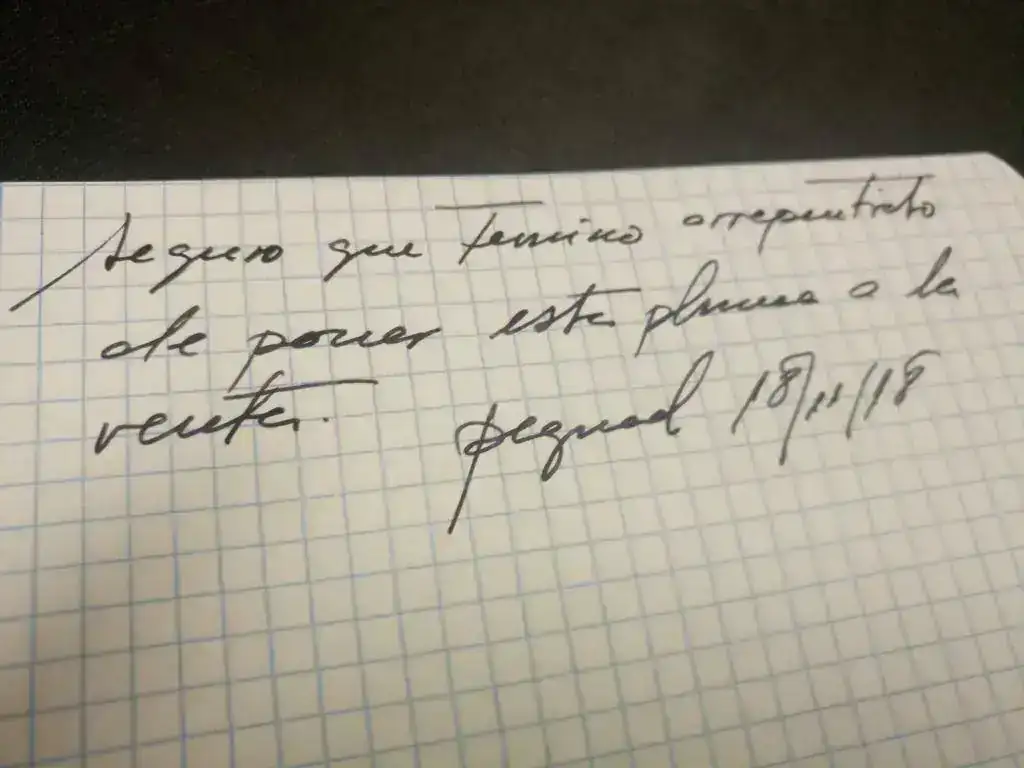 seguro que termino arrepentido
de poner esta pluma a la
venta. pequod 18/11/18